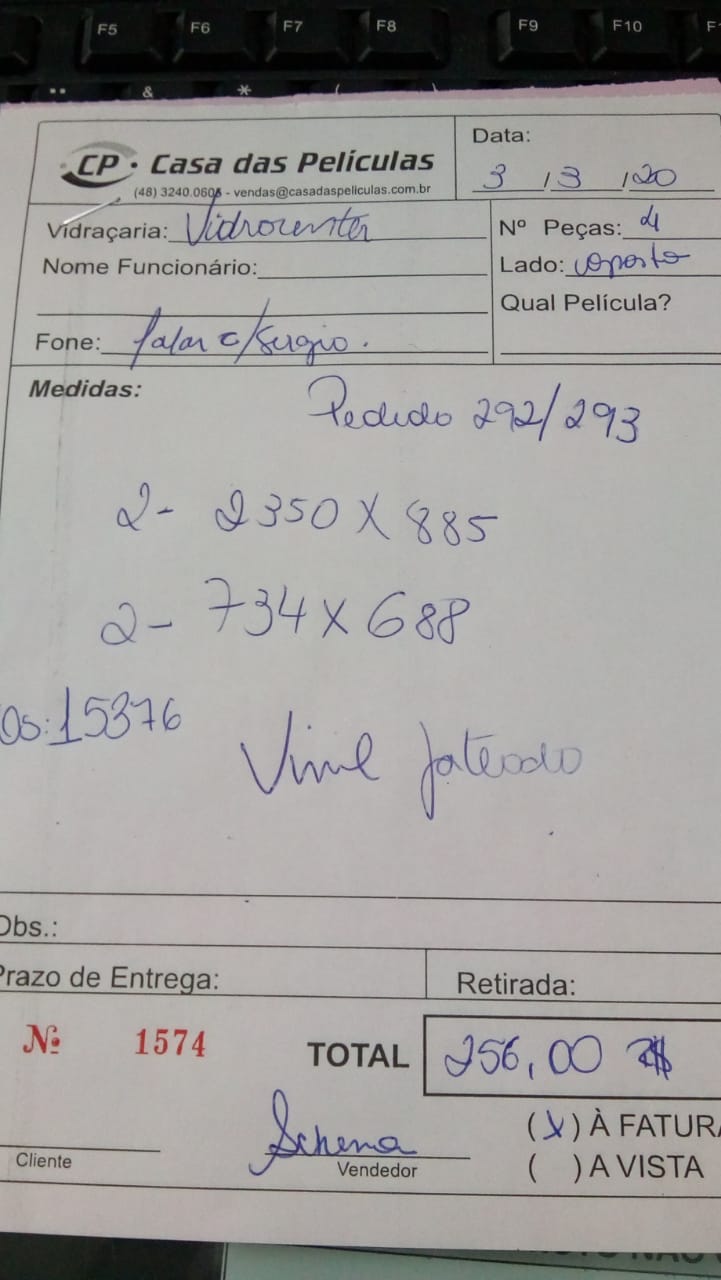 F5 F6 F7 F8 F9 F10
& * (
CP · Casa das Películas
(48) 3240.0606 - vendas@casadaspeliculas.com.br
Data:
3 / 3 / 20
Vidraçaria: Vidrocenter
Nome Funcionário:
Fone: falar c/ Sergio.
Nº Peças: 4
Lado: oposto
Qual Película?
Medidas:
Pedido 292/293
2- 2350 X 885
2- 734 X 688
Os: 15376
Vinil Jateado
Obs.:
Prazo de Entrega:
Retirada:
Nº 1574
TOTAL 256,00 R$
Cliente
Vendedor
(X) À FATURA
( ) A VISTA